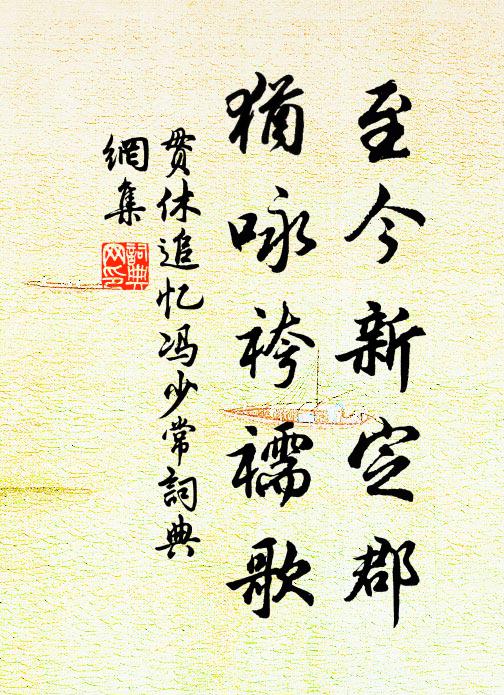 至今新定郡
猶咏袴襦歌
贯休追忆冯少常詞典
網集
詞典
网印